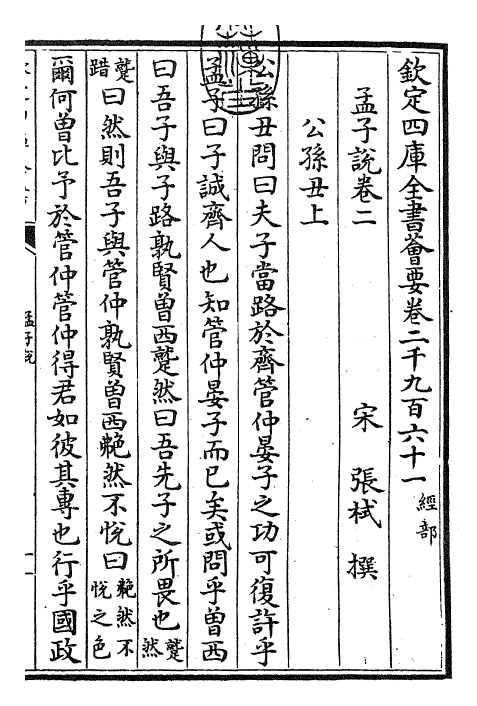 欽定四庫全書薈要卷二千九百六十一經部
孟子說卷二
宋 張栻 撰
公孫丑上
公孫丑問曰夫子當路於齊管仲晏子之功可復許乎
孟子曰子誠齊人也知管仲晏子而已矣或問乎曾西
曰吾子與子路孰賢曾西蹵然曰吾先子之所畏也蹵然
踖曰然則吾子與管仲孰賢曾西艴然不悅曰艴然不悅之色
爾何曾比予於管仲管仲得君如彼其專也行乎國政
孟子說